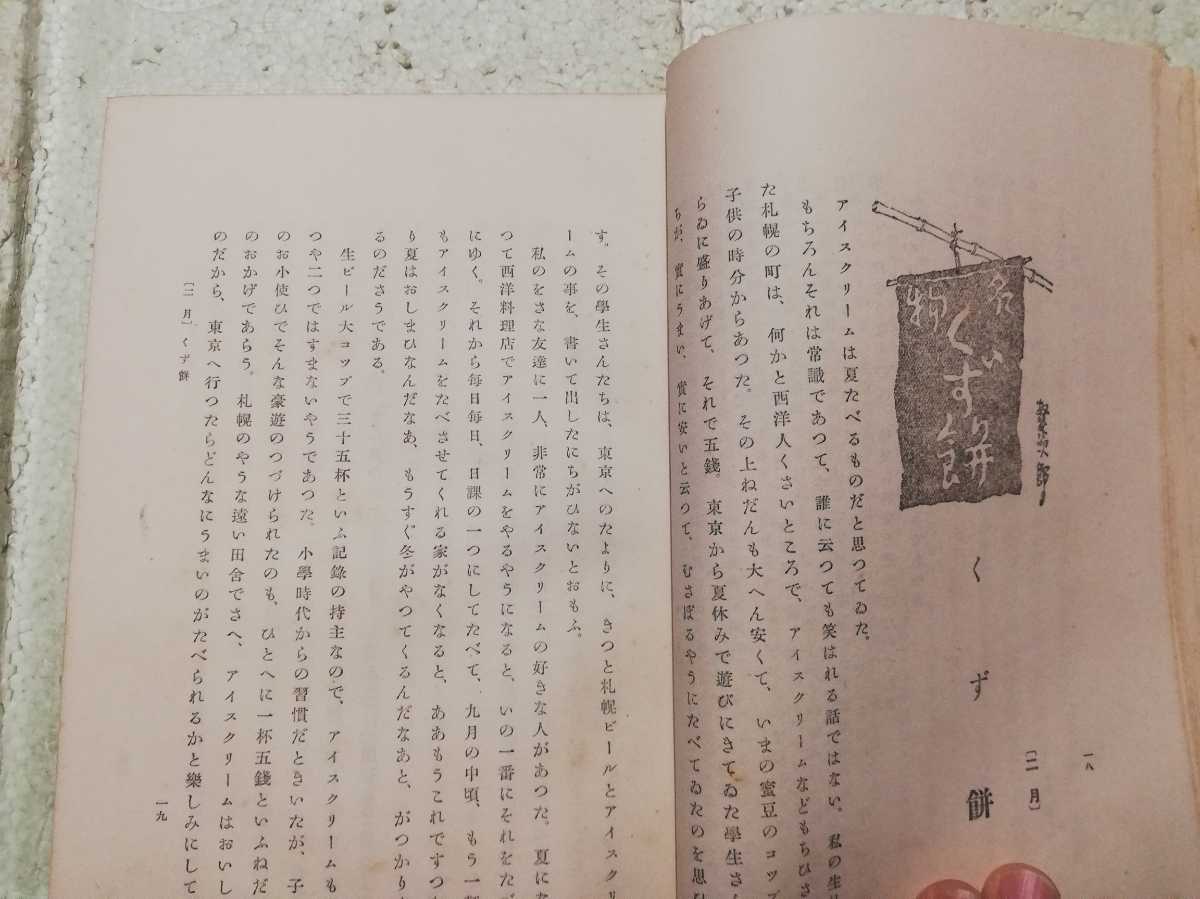 一八
〔二月〕
くず餅
名物
くず餅
アイスクリームは夏たべるものだと思つてゐた。
もちろんそれは常識であつて、誰に云つても笑はれる話ではない。私の生
た札幌の町は、何かと西洋人くさいところで、アイスクリームなどもちひさ
子供の時分からあつた。その上ねだんも大へん安くて、いまの蜜豆のコツプ
らゐに盛りあげて、それで五錢。東京から夏休みで遊びにきてゐた學生さん
ちが、實にうまい、實に安いと云つて、むさぼるやうにたべてゐたのを思ひ
す。その學生さんたちは、東京へのたよりに、きつと札幌ビールとアイスクリ
ームの事を、書いて出したにちがひないとおもふ。
私のをさな友達に一人、非常にアイスクリームの好きな人があつた。夏にな
つて西洋料理店でアイスクリームをやるやうになると、いの一番にそれをたべ
にゆく。それから毎日毎日、日課の一つにしてたべて、九月の中頃、もう一軒
もアイスクリームをたべさせてくれる家がなくなると、ああもうこれですつか
り夏はおしまひなんだなあ、もうすぐ冬がやつてくるんだなあと、がつかりす
るのださうである。
生ビール大コツプで三十五杯といふ記錄の持主なので、アイスクリームも
つや二つではすまないやうであつた。小學時代からの習慣だときいたが、子
のお小使ひでそんな豪遊のつづけられたのも、ひとへに一杯五錢といふねだ
のおかげであらう。札幌のやうな遠い田舎でさへ、アイスクリームはおいし
のだから、東京へ行つたらどんなにうまいのがたべられるかと樂しみにして
〔二月〕くず餅
一九